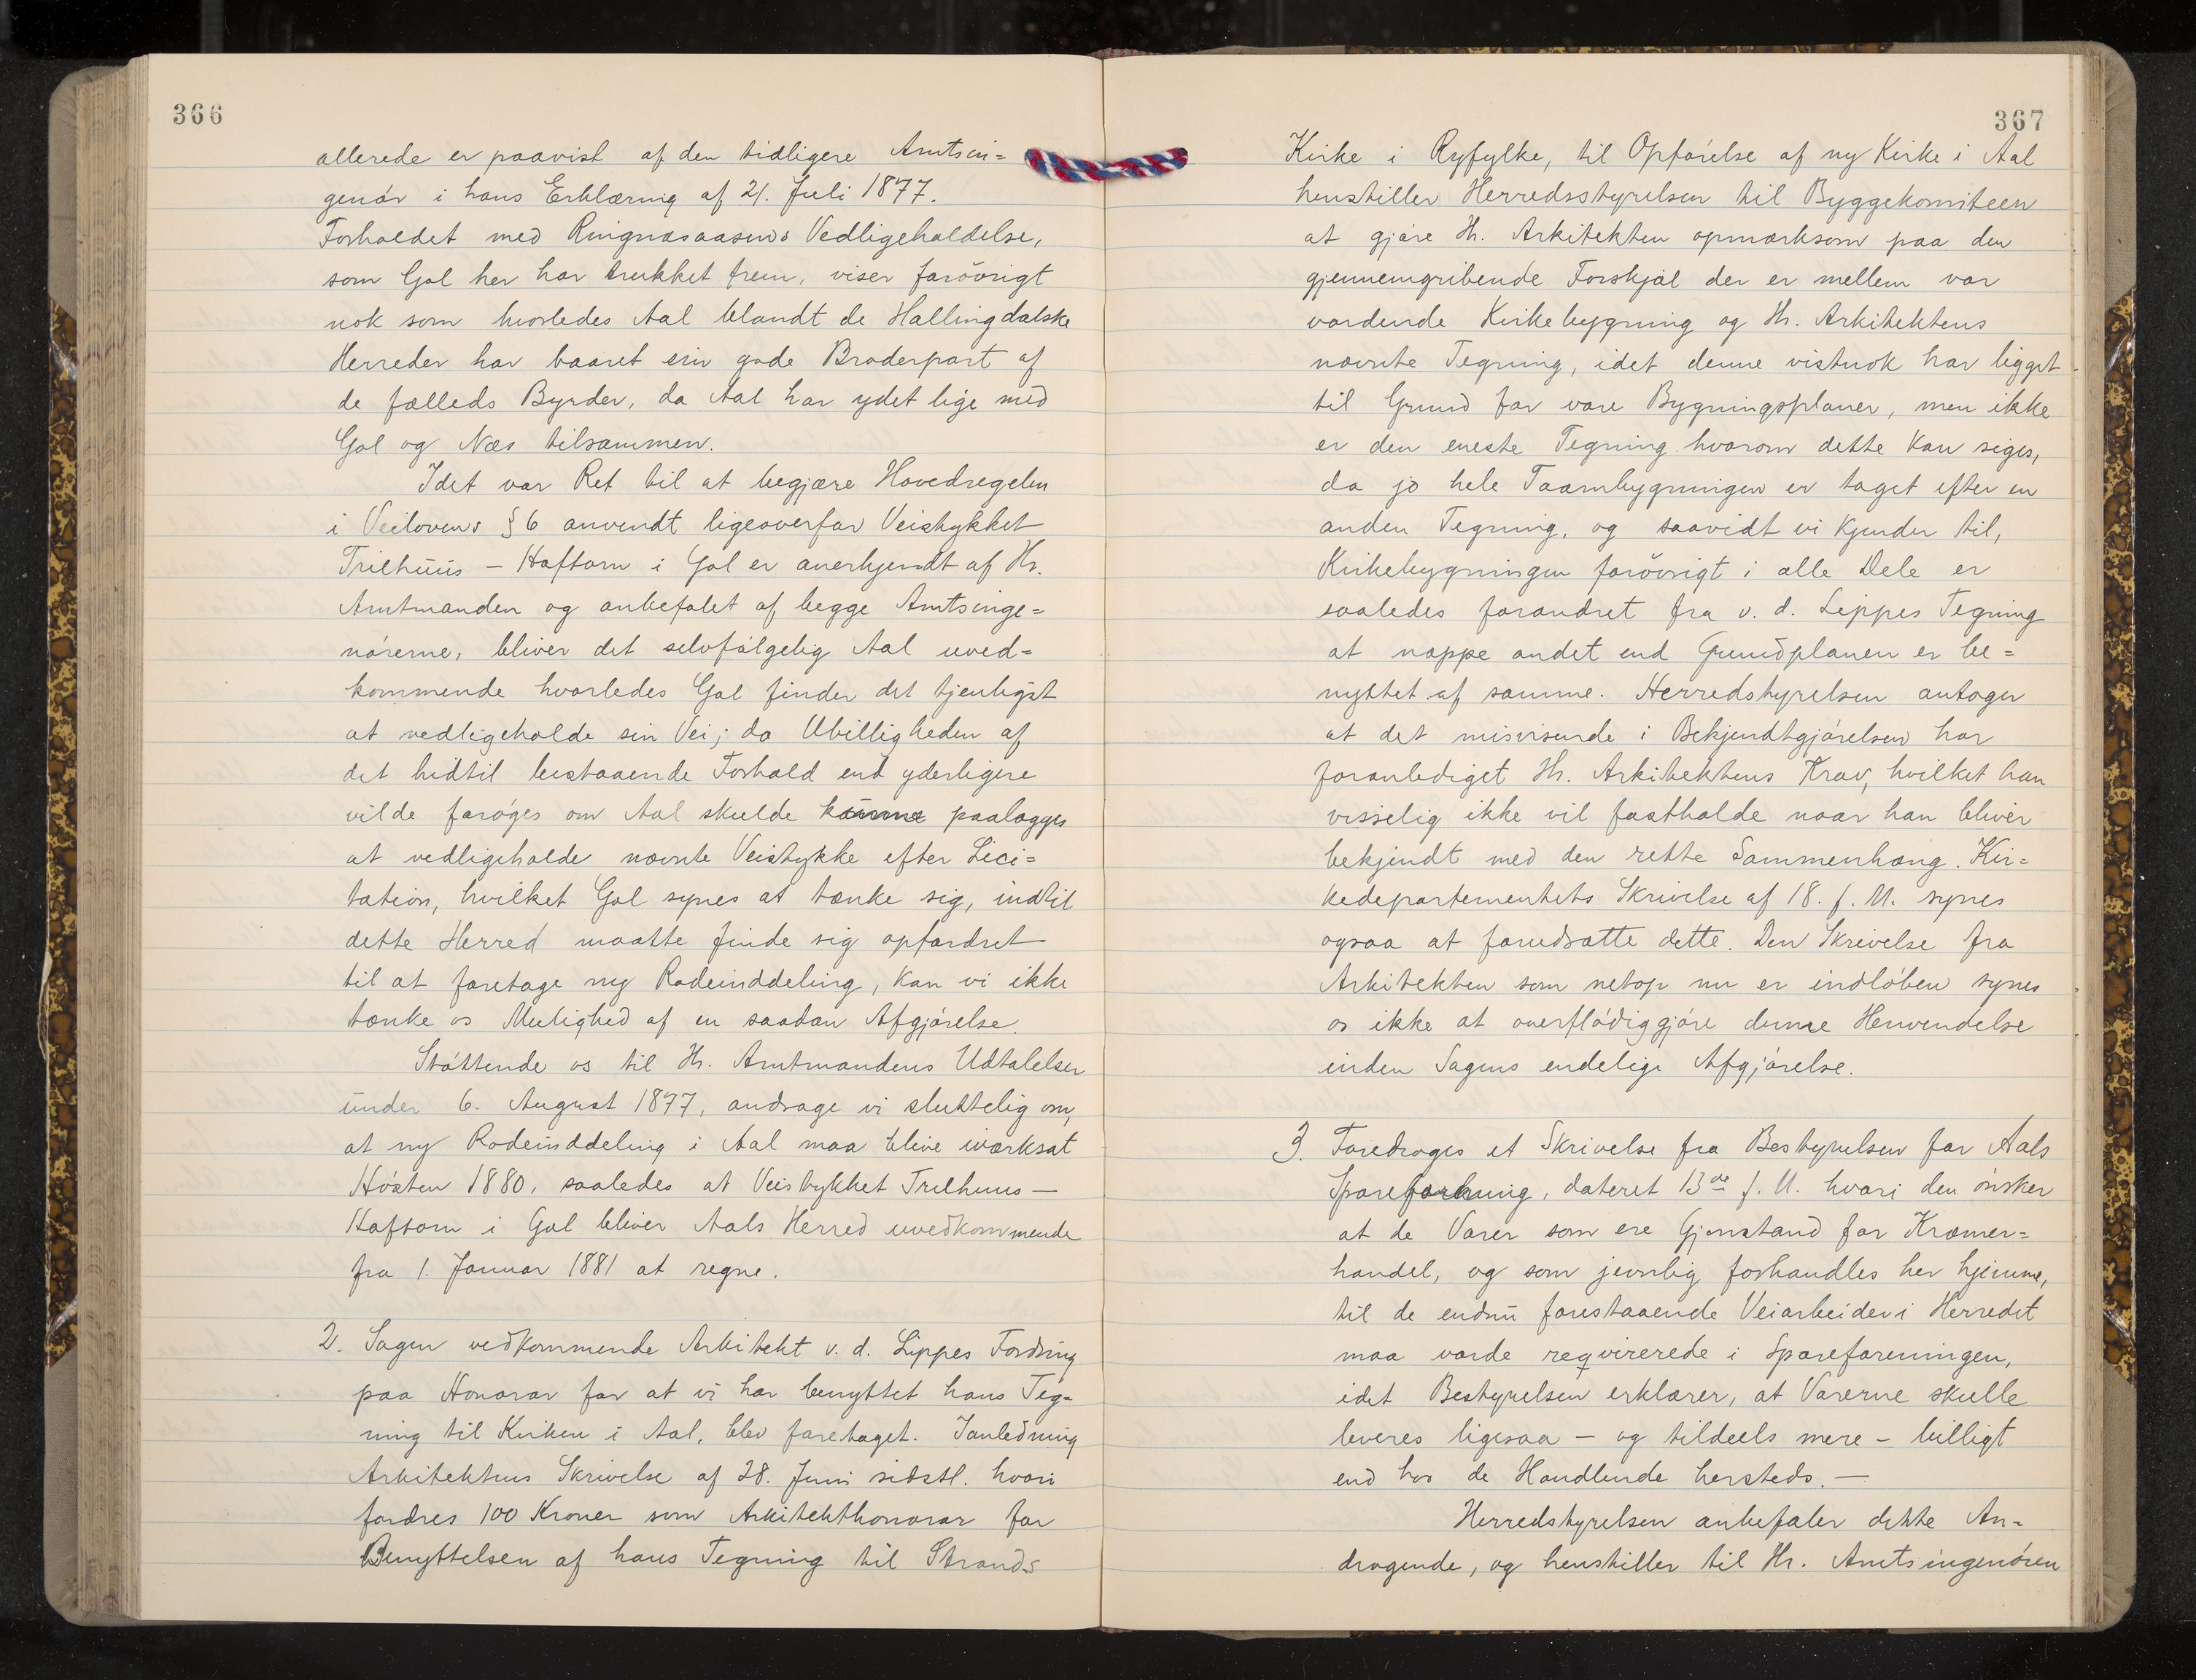 366
allerede er paavist af den tidligere Amtsin=
genör i hans Erklæring af 21. Juli 1877.
Forholdet med Ringnæsaasens Vedligeholdelse,
som Gol her har trukket frem, viser forövrigt
nok som hvorledes Aal blandt de Hallingdalske
Herreder har baaret sin gode Broderpart af
de fælleds Byrder, da Aal har ydet lige med
Gol og Næs tilsammen.
Idet vor Ret til at begjære Hovedregelen
i Veilovens § 6 anvendt ligeoverfor Veistykket
Trilhuus – Haftorn i Gol er anerkjendt af Hr.
Amtmanden og anbefalet af begge Amtsinge=
nörerne, bliver det selvfölgelig Aal uved=
kommende hvorledes Gol finder det tjenligst
at vedligeholde sin Vei; da Ubilligheden af
det hidtil bestaaende Forhold end yderligere
vilde foröges om Aal skulde kunne paalægges
at vedligeholde nævnte Veistykke efter Lici=
tation, hvilket Gol synes at tænke sig, indtil
dette Herred maatte finde sig opfordret
til at foretage ny Rodeinddeling, kan vi ikke
tænke os Mulighed af en saadan Afgjörelse.
Stöttende os til Hr. Amtmandens Udtalelser
under 6. August 1877, andrage vi sluttelig om,
at ny Rodeinddeling i Aal maa blive iværksat
Hösten 1880, saaledes at Veistykket Trelhuus —
Haftorn i Gol bliver Aals Herred uvedkommende
fra 1. Januar 1881 at regne.
2. Sagen vedkommende Arkitekt v. d. Lippes Fordring
paa Honorar for at vi har benyttet hans Teg=
ning til Kirken i Aal, blev foretaget. Ianledning
Arkitektens Skrivelse af 28. Juni sidstl. hvori
fordres 100 Kroner som Arkitekthonorar for
Benyttelsen af hans Tegning til Strands
367
Kirke i Ryfylke, til Opförelse af ny Kirke i Aal
henstiller Herredsstyrelsen til Byggekomiteen
at gjöre Hr. Arkitekten opmærksom paa den
gjennemgribende Forskjæl der er mellem vor
vordende Kirkebygning og Hr. Arkitektens
nævnte Tegning, idet denne vistnok har ligget
til Grund for vore Bygningsplaner, men ikke
er den eneste Tegning hvorom dette kan siges,
da jo hele Taarnbygningen er taget efter en
anden Tegning, og saavidt vi kjender til,
Kirkebygningen forövrigt i alle Dele er
saaledes forandret fra v. d. Lippes Tegning
at nappe andet end Grundplanen er be=
nyttet af samme. Herredstyrelsen antager
at det misvisende i Bekjendtgjörelsen har
foranlediget Hr. Arkitektens Krav, hvilket han
visselig ikke vil fastholde naar han bliver
bekjendt med den rette Sammenhæng. Kir=
kedepartementets Skrivelse af 18. f. M. synes
ogsaa at forudsætte dette. Den Skrivelse fra
Arkitekten som netop nu er indlöben synes
os ikke at overflödiggjöre denne Henvendelse
inden Sagens endelige Afgjörelse.
3. Foredroges et Skrivelse fra Bestyrelsen for Aals
Spareforening, dateret 13de f. M. hvori den önsker
at de Varer som ere Gjenstand for Kramer=
handel, og som jevnlig forhandles her hjemme,
til de endnu forestaaende Veiarbeider i Herredet
maa vorde reqvirerede i Spareforeningen,
idet Bestyrelsen erklærer, at Varerne skulle
leveres ligesaa – og tildeels mere – billigt
end hos de Handlende hersteds. —
Herredstyrelsen anbefaler dette An=
dragende, og henstiller til Hr. Amtsingenören